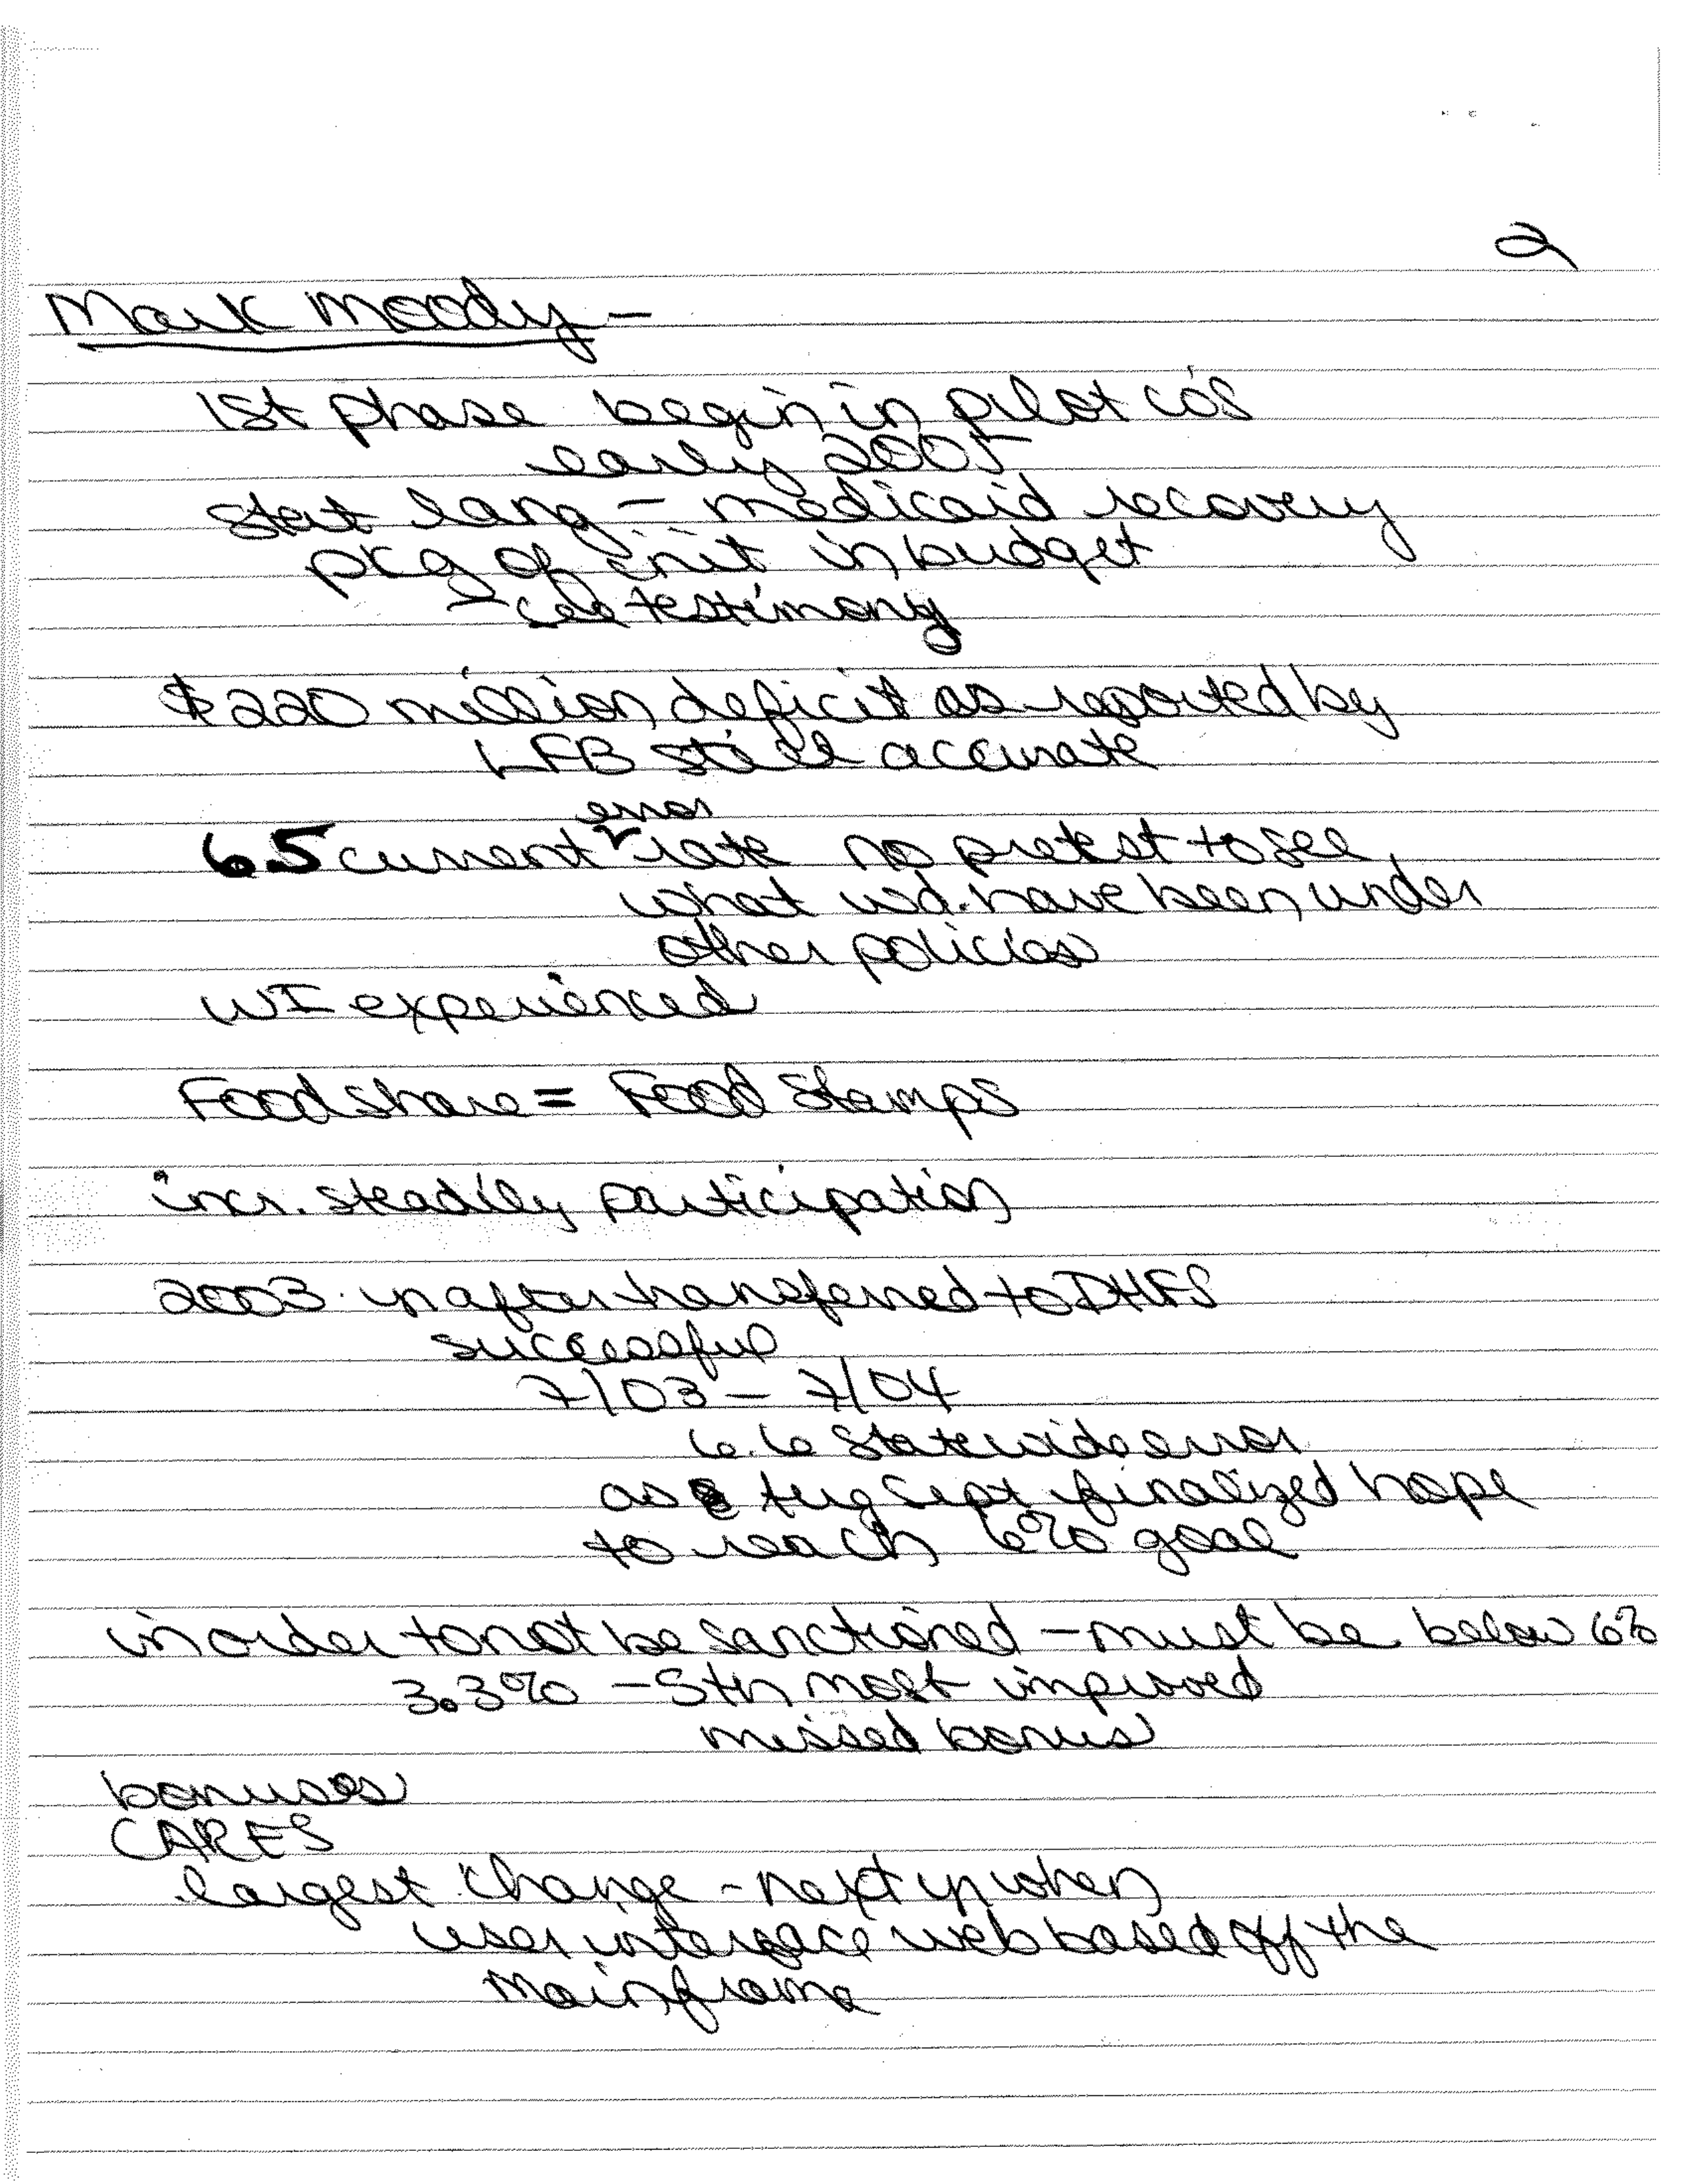 2
Mark Moody –
1st phase begin in pilot co's
early 2005
stat lang – medicaid recovery
pkg of init in budget
– see testimony
$220 million deficit as reported by
LFB still accurate
error
6.5 current rate no pretest to see
what wd. have been under
other policies
WI experienced
Foodshare = Food Stamps
incr. steadily participation
2003 after transferred to DHFS
successful
7/03 – 7/04
6.6 statewide error
as Aug Sept finalized hope
to reach 6% goal
in order to not be sanctioned – must be below 6%
3.3% – 5th most improved
missed bonus
bonuses
CARES
largest change – next yr when
user interface web based off the
mainframe